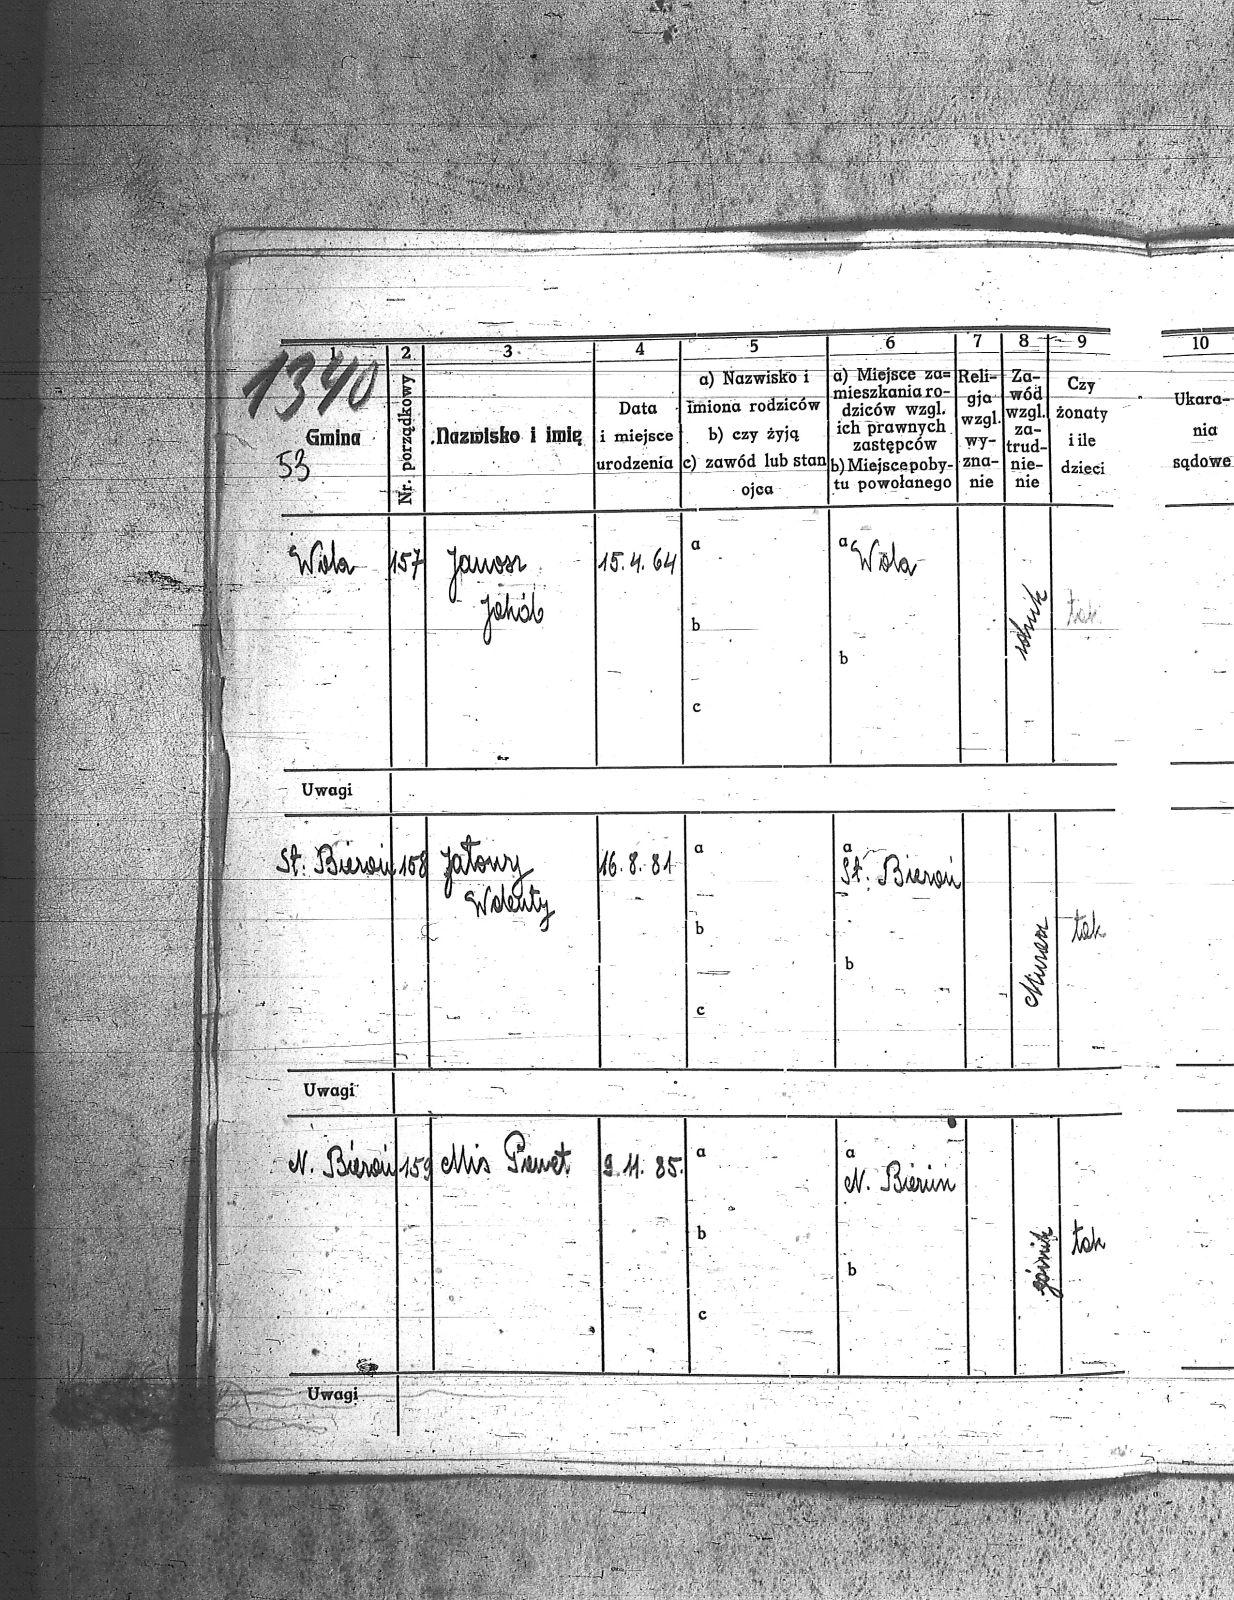 1 2 3 4 5 6 7 8 9 10
1340
Gmina
53
Nr. porządkowy
Nazwisko i imię
Data
i miejsce
urodzenia
a) Nazwisko i
imiona rodziców
b) czy żyją
c) zawód lub stan
ojca
a) Miejsce za=
mieszkania ro-
dziców wzgl.
ich prawnych
zastępców
b) Miejsce poby-
tu powołanego
Reli-
gja
wzgl.
wy-
zna-
nie
Za-
wód
wzgl.
za-
trud-
nie-
nie
Czy
żonaty
i ile
dzieci
Ukara-
nia
sądowe
Wola 157 Janosz 15. 4. 64 a a Wola
Jakób
b
b
c
rolnik
tak
Uwagi
St. Bieruń 158 Jatowy 16. 8. 81 a a
St. Bieruń
Walenty
b
b
c
Murarz
tak
Uwagi
N. Bieruń 159 Mis Paweł 9. 11. 85. a a
N. Bieruń
b
b
c
górnik
tak
Uwagi